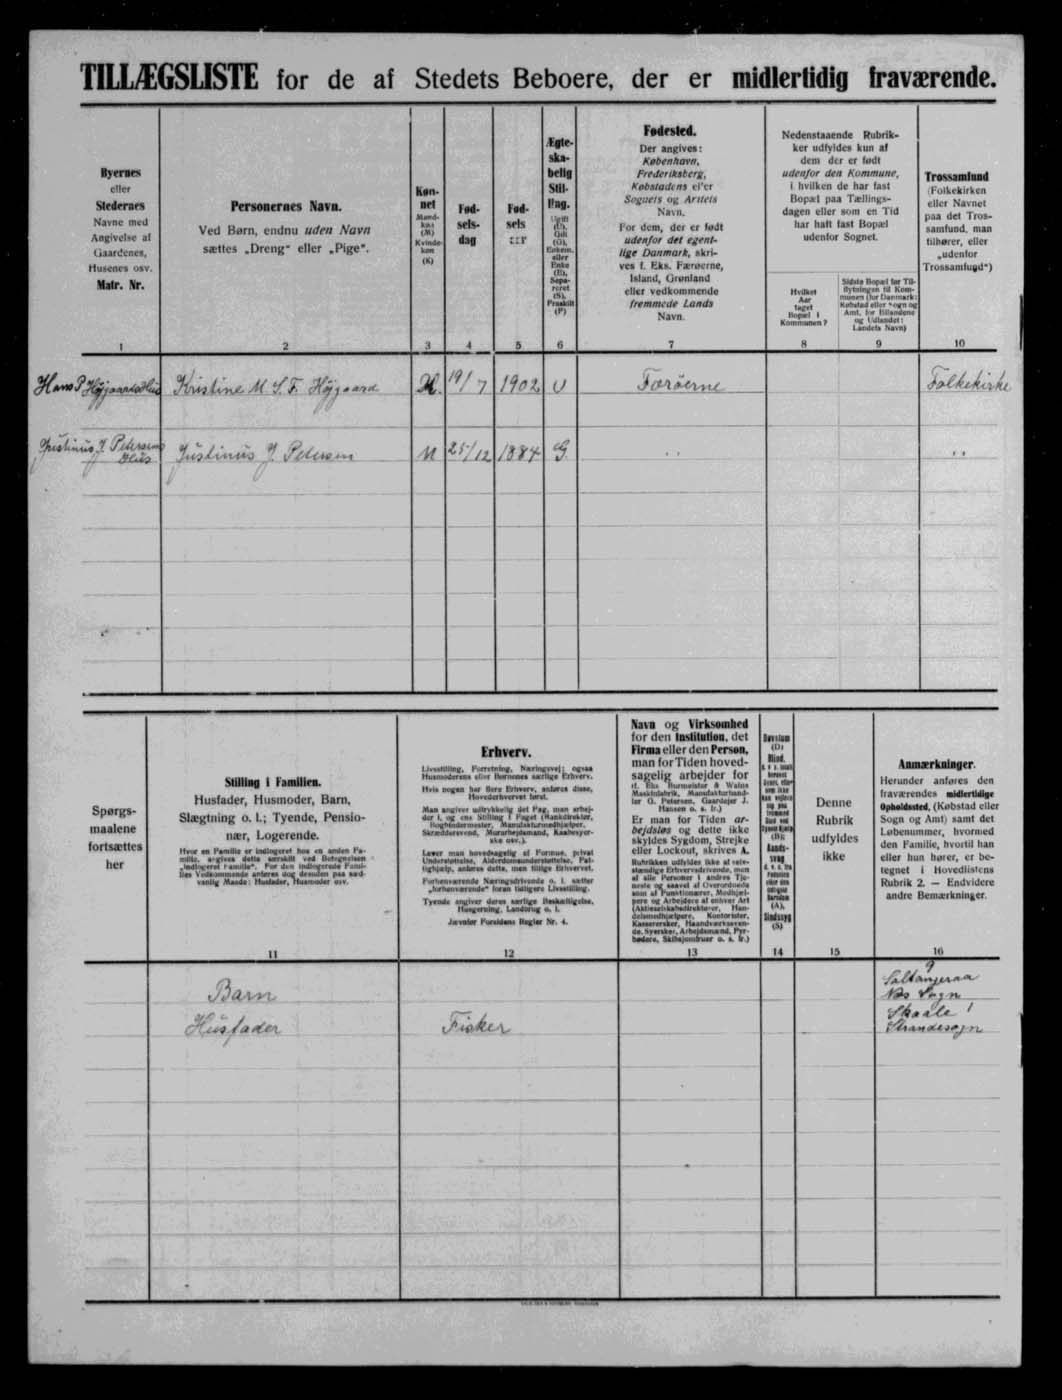 TILLÆGSLISTE for de af Stedets Beboere, der er midlertidig fraværende.
Byernes
eller
Stedernes
Navne med
Angivelse af
Gaardenes,
Husenes osv.
Matr. Nr.
1
Personernes Navn.
Ved Børn, endnu uden Navn
sættes „Dreng“ eller „Pige“.
2
Køn-
net
Mand-
køn
(M)
Kvinde-
køn
(K)
3
Fød-
sels-
dag
4
Fød-
sels
aar
5
Ægte-
ska-
belig
Stil-
ling.
Ugift
(U),
Gift
(G),
Enkem.
eller
Enke
(E),
Sepa-
reret
(S),
Fraskilt
(F)
6
Fødested.
Der angives:
København,
Frederiksberg,
Købstadens eller
Sognets og Amtets
Navn.
For dem, der er født
udenfor det egent-
lige Danmark, skri-
ves f. Eks. Færøerne,
Island, Grønland
eller vedkommende
fremmede Lands
Navn.
7
Nedenstaaende Rubrik-
ker udfyldes kun af
dem der er født
udenfor den Kommune,
i hvilken de har fast
Bopæl paa Tællings-
dagen eller som en Tid
har haft fast Bopæl
udenfor Sognet.
Hvilket
Aar
taget
Bopæl i
Kommunen?
8
Sidste Bopæl før Til-
flytningen til Kom-
munen (for Danmark:
Købstad eller Sogn og
Amt, for Bilandene
og Udlandet:
Landets Navn)
9
Trossamfund
(Folkekirken
eller Navnet
paa det Tros-
samfund, man
tilhører, eller
„udenfor
Trossamfund“)
10
Hans P. Højgaards Hus Kristine M. S. F. Højgaard K. 19/7 1902 U Færøerne Folkekirke
Justinus J. Petersens
Hus Justinus J. Petersen M 25/12 1884 G. " "
Spørgs-
maalene
fortsættes
her
Stilling i Familien.
Husfader, Husmoder, Barn,
Slægtning o. l.; Tyende, Pensio-
nær, Logerende.
Hvor en Familie er indlogeret hos en anden Fa-
milie, angives dette særskilt ved Betegnelsen
„indlogeret Familie“. For den indlogerede Fami-
lies Vedkommende anføres dog desuden paa sæd-
vanlig Maade: Husfader, Husmoder osv.
11
Erhverv.
Livsstilling, Forretning, Næringsvej; ogsaa
Husmoderens eller Børnenes særlige Erhverv.
Hvis nogen har flere Erhverv, anføres disse,
Hovederhvervet først.
Man angiver udtrykkelig det Fag, man arbej-
der i, og ens Stilling i Faget (Bankdirektør,
Bogbindermester, Manufakturmedhjælper,
Skræddersvend, Murarbejdsmand, Kaabesyer-
ske osv.).
Lever man hovedsagelig af Formue, privat
Understøttelse, Alderdomsunderstøttelse, Fat-
tighjælp, anføres dette, men tillige Erhvervet.
Forhenværende Næringsdrivende o. l. sætter
„forhenværende“ foran tidligere Livsstilling.
Tyende angiver deres særlige Beskæftigelse,
Husgerning, Landbrug o. l.
Jævnfør Forsidens Regler Nr. 4.
12
Navn og Virksomhed
for den Institution, det
Firma eller den Person,
man for Tiden hoved-
sagelig arbejder for
(f. Eks. Burmeister & Wains
Maskinfabrik, Manufakturhand-
ler G. Petersen, Gaardejer J.
Hansen o. s. fr.)
Er man for Tiden ar-
bejdsløs og dette ikke
skyldes Sygdom, Strejke
eller Lockout, skrives A.
Rubrikken udfyldes ikke af selv-
stændige Erhvervsdrivende, men
af alle Personer i andres Tje-
neste og saavel af Overordnede
som af Funktionærer, Medhjæl-
pere og Arbejdere af enhver Art
(Aktieselskabsdirektører, Han-
delsmedhjælpere, Kontorister,
Kasserersker, Haandværkssven-
de, Syersker, Arbejdsmænd, Fyr-
bødere, Skibsjomfruer o. s. fr.)
13
Døvstum
(D)
Blind,
(B);
Aands-
svag
(A),
Sindssyg
(S)
14
Denne
Rubrik
udfyldes
ikke
15
Anmærkninger.
Herunder anføres den
fraværendes midlertidige
Opholdssted, (Købstad eller
Sogn og Amt) samt det
Løbenummer, hvormed
den Familie, hvortil han
eller hun hører, er be-
tegnet i Hovedlistens
Rubrik 2. — Endvidere
andre Bemærkninger.
16
9
Barn Saltangeraa
Næs Sogn
Husfader Fisker Skaale 1
Strandesogn